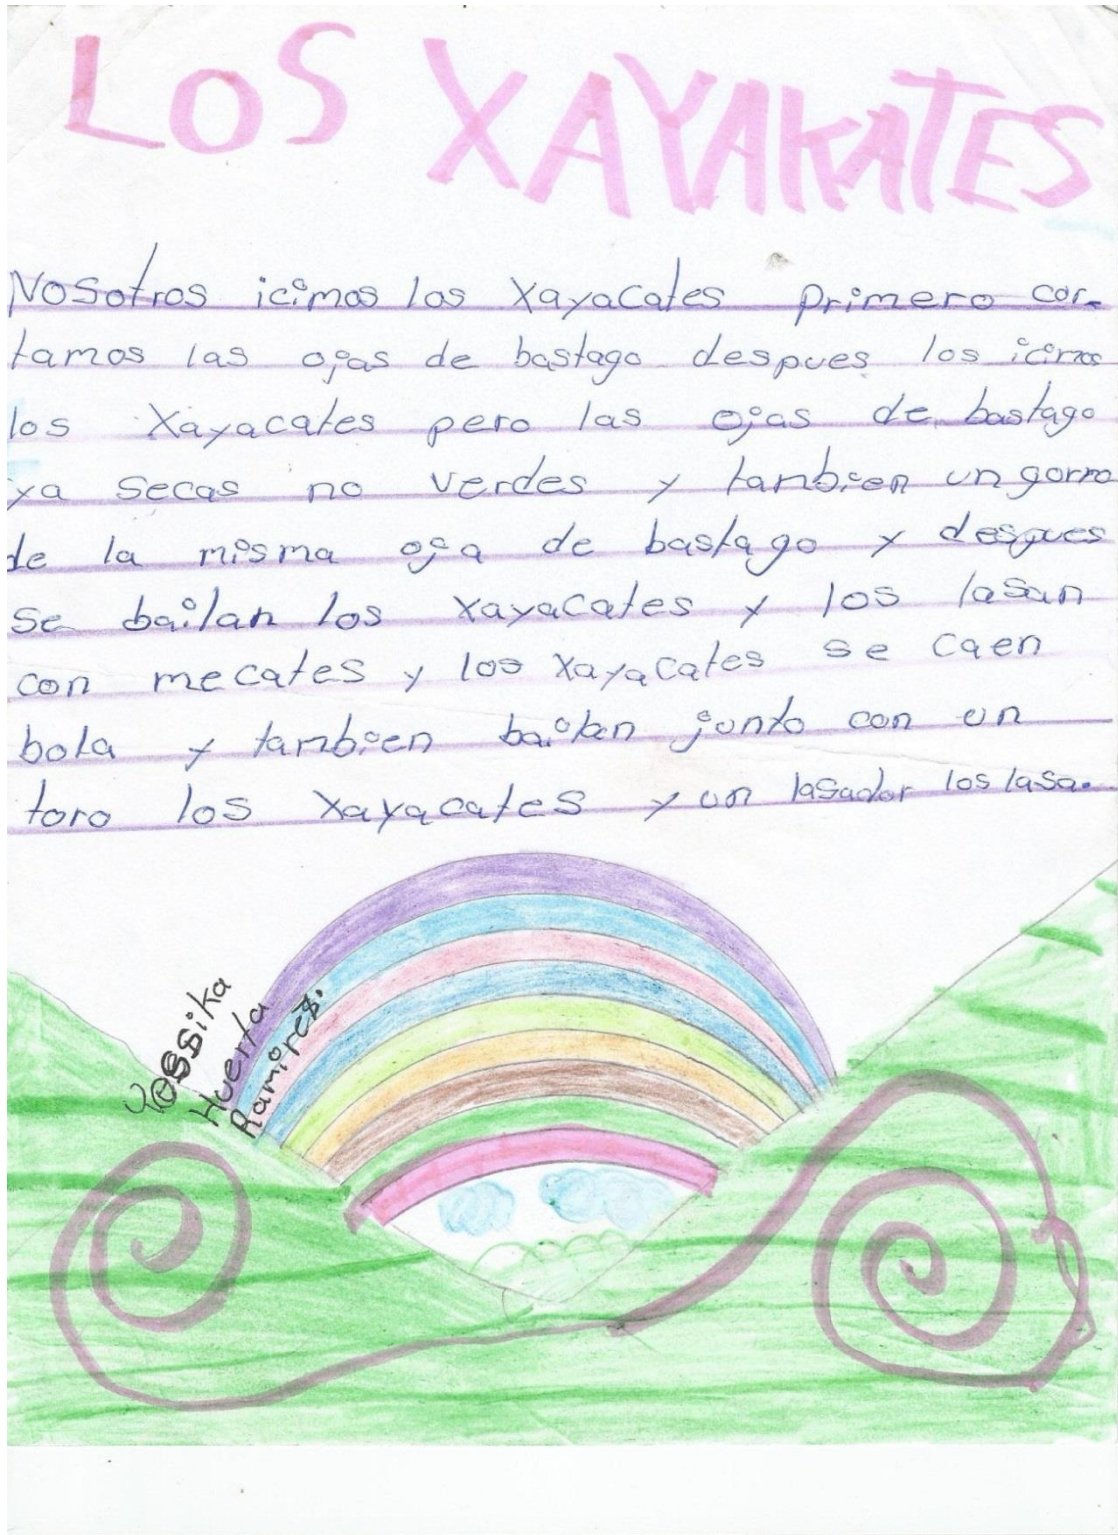 LOS XAYAKATES
Nosotros icimos los Xayacates primero cor-
tamos las ojas de bastago despues los icimos
los Xayacates pero las ojas de bastago
ya secas no verdes y tambien un gorro
de la misma oja de bastago y despues
se bailan los xayacates y los lasan
con mecates y los xayacates se caen
bola y tambien bailan junto con un
toro los xayacates y un lasador los lasa.
Yossika
Huerta
Ramires.